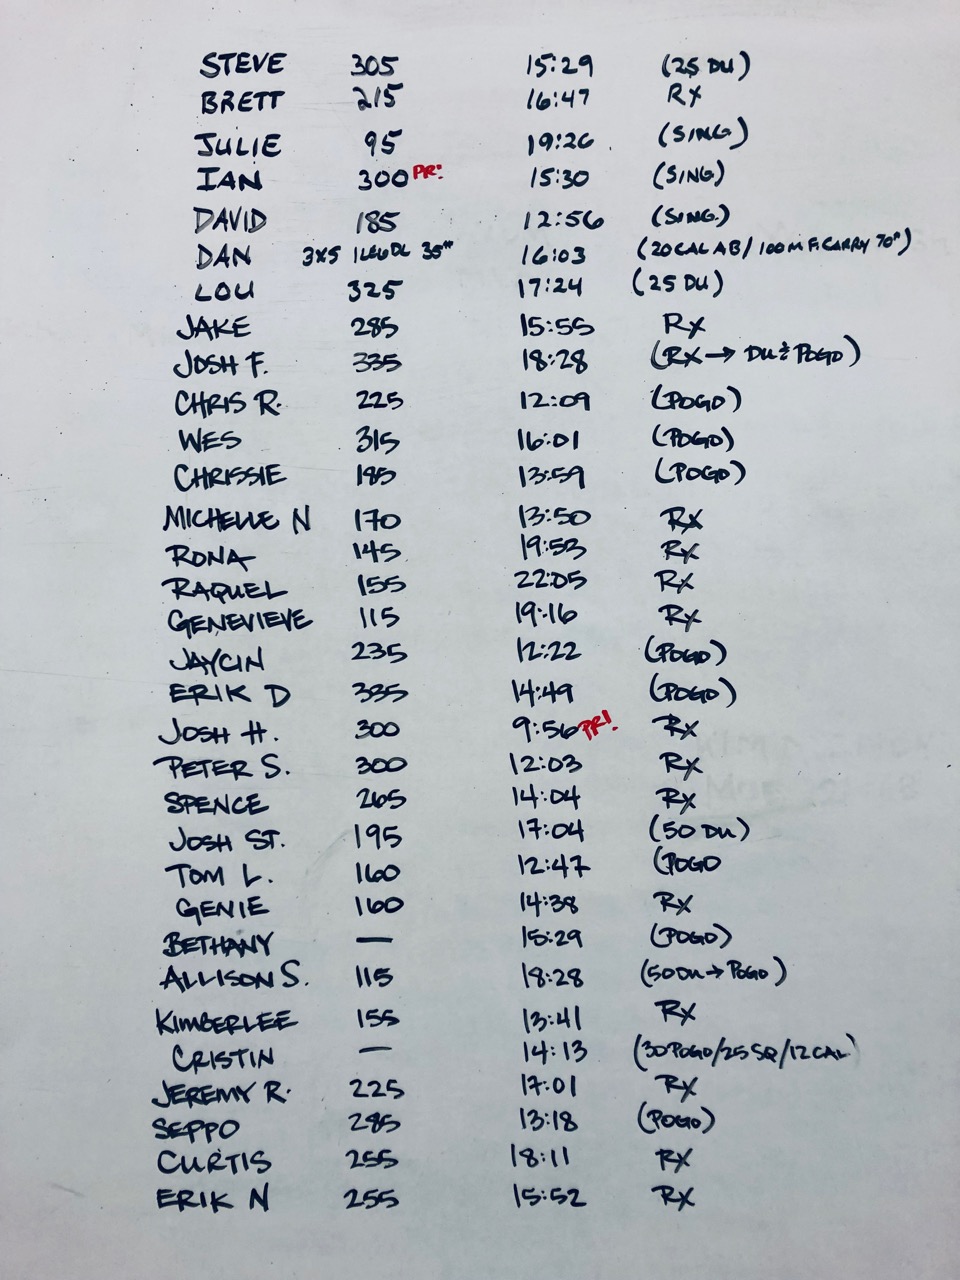 STEVE 305 15:29 (25 DU)
BRETT 215 16:47 RX
JULIE 95 19:26 (SING)
IAN 300 PR! 15:30 (SING)
DAVID 185 12:56 (SING.)
DAN 3X5 1LEGDL 35# 16:03 (20CAL AB/100M F. CARRY 70#)
LOU 325 17:24 (25 DU)
JAKE 285 15:55 RX
JOSH F. 335 18:28 (RX → DU & POGO)
CHRIS R. 225 12:09 (POGO)
WES 315 16:01 (POGO)
CHRISSIE 185 13:59 (POGO)
MICHELLE N 170 13:50 RX
RONA 145 19:53 RX
RAQUEL 155 22:05 RX
GENEVIEVE 115 19:16 RX
JAYCIN 235 12:22 (POGO)
ERIK D 335 14:49 (POGO)
JOSH H. 300 9:56 PR! RX
PETER S. 300 12:03 RX
SPENCE 265 14:04 RX
JOSH ST. 195 17:04 (50 DU)
TOM L. 160 12:47 (POGO
GENIE 160 14:38 RX
BETHANY — 15:29 (POGO)
ALLISON S. 115 18:28 (50DU → POGO)
KIMBERLEE 155 13:41 RX
CRISTIN — 14:13 (30POGO/25SQ/12CAL)
JEREMY R. 225 17:01 RX
SEPPO 285 13:18 (POGO)
CURTIS 255 18:11 RX
ERIK N 255 15:52 RX